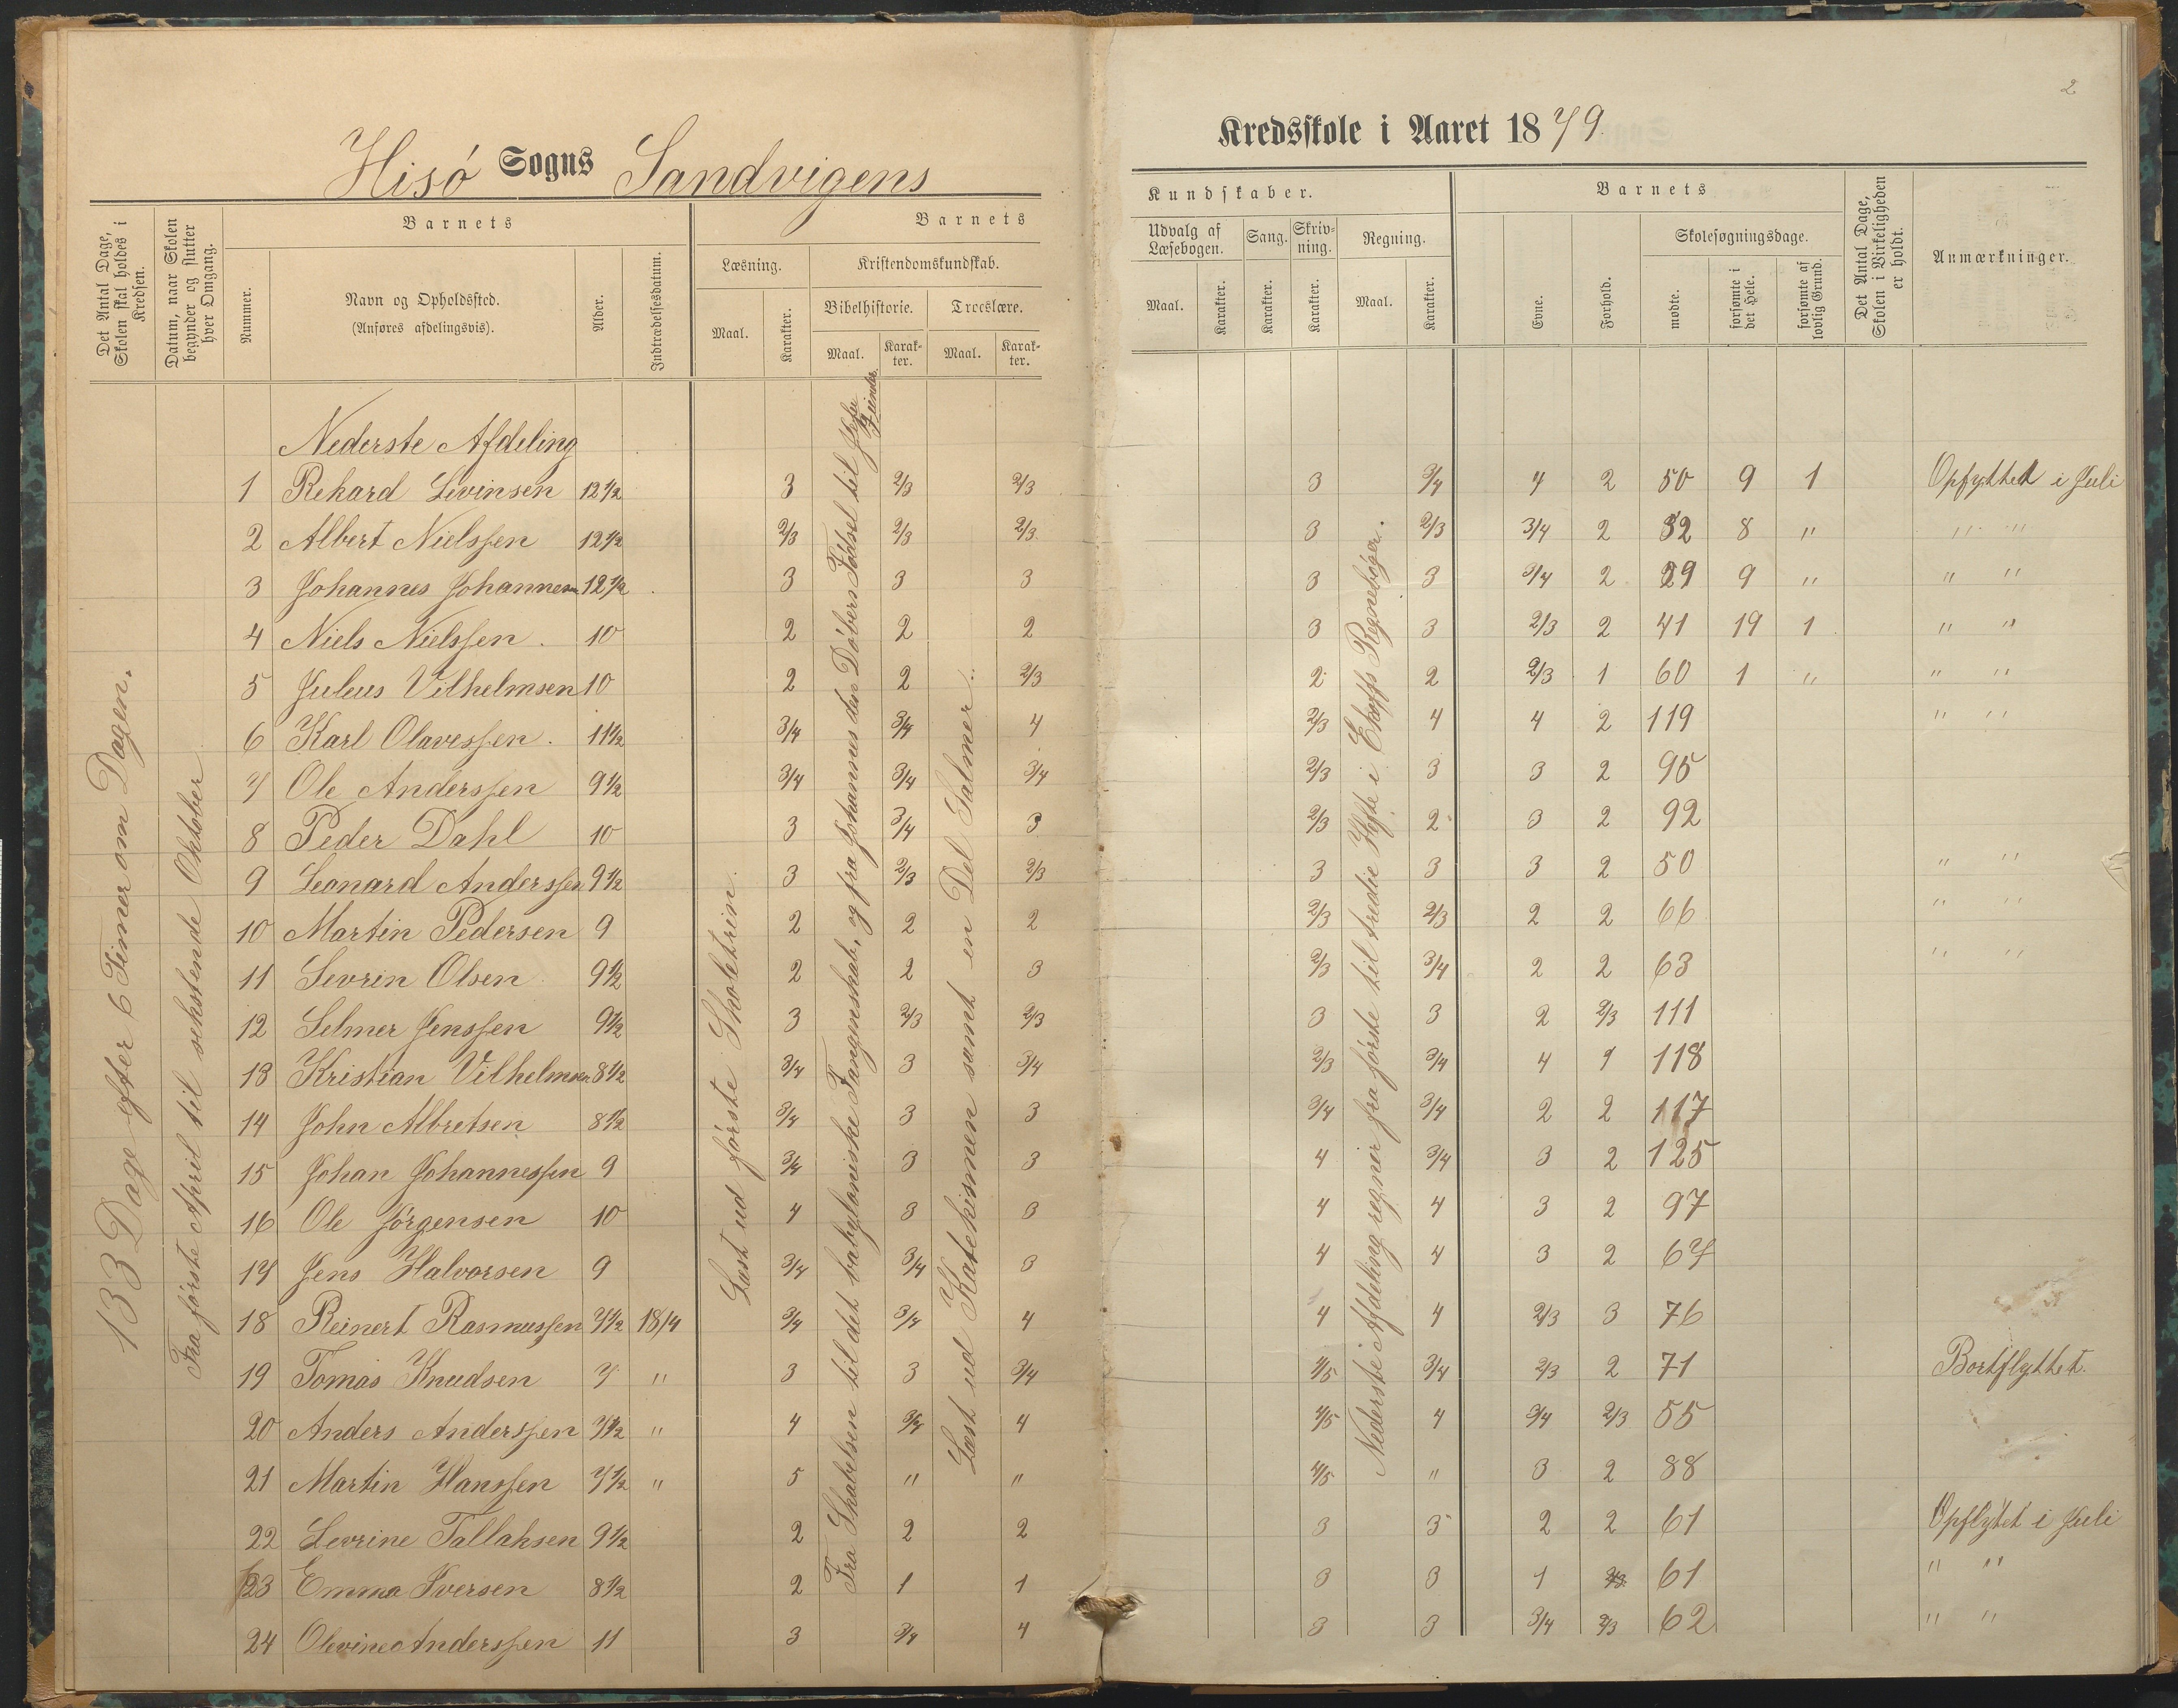 2
Hisø Sogns Sandvigens
Kredsskole i Aaret 1879.
Det Antal Dage, Skolen skal holdes i Kredsen.
Datum, naar Skolen begynder og slutter hver Omgang.
Barnets
Nummer.
Navn og Opholdssted.
(Anføres afdelingsvis).
Alder.
Indtrædelsesdatum.
Barnets
Læsning.
Maal.
Karakter.
Kristendomskundskab.
Bibelhistorie.
Maal.
Karakter.
Troeslære.
Maal.
Karakter.
Kundskaber.
Udvalg af Læsebogen.
Maal.
Karakter.
Sang.
Karakter.
Skrivning.
Karakter.
Regning.
Maal.
Karakter.
Barnets
Evne.
Forhold.
Skolesøgningsdage.
mødte.
forsømte i det Hele.
forsømte af lovlig Grund.
Det Antal Dage, Skolen i Virkeligheden er holdt.
Anmærkninger.
133 Dage efter 6 Timer om Dagen.
Fra første April til sekstende Oktober
Læst ud første Skoletrin.
Fra Skabelsen til det babyloniske Fangenskab, og fra Johannes den Døbers Fødsel til Jesu Fiender.
Læst ud Katekismen samt en Del Salmer.
Nederste Afdeling regner fra første til tredie Hefte i Regnebøger.
Nederste Afdeling
1 Rekard Levinsen 12 1/2 3 2/3 2/3 3 3/4 4 2 50 9 1 Opfyttet i Juli
2 Albert Nielssen 12 1/2 2/3 2/3 2/3 3 2/3 3/4 2 52 8 " " "
3 Johannes Johannesen 12 1/2 3 3 3 3 3 3/4 2 59 9 " " "
4 Niels Nielssen. 10 2 2 2 3 3 2/3 2 41 19 1 " "
5 Juleus Vilhelmsen 10 2 2 2/3 2 2 2/3 1 60 1 " " "
6 Karl Olavessen. 11 1/2 3/4 3/4 4 2/3 4 4 2 119 " "
7 Ole Anderssen 9 1/2 3/4 3/4 3/4 2/3 3 3 2 95
8 Peder Dahl 10 3 3/4 3 2/3 2 3 2 92
9 Leonard Anderssen 9 1/2 3 2/3 2/3 3 3 3 2 50 " "
10 Martin Pedersen 9 2 2 2 2/3 2/3 2 2 66 " "
11 Sevrin Olsen 9 1/2 2 2 3 2/3 3/4 2 2 63 " "
12 Selmer Jenssen 9 1/2 3 2/3 2/3 3 3 2 2/3 111
13 Kristian Vilhelmsen 8 1/2 3/4 3 3/4 2/3 3/4 4 1 118
14 John Albretsen 8 1/2 3/4 3 3 3/4 3/4 2 2 117
15 Johan Johannessen 9 3/4 3 3 4 3/4 3 2 125
16 Ole Jørgensen 10 4 3 3 4 4 3 2 97
17 Jens Halvorsen 9 3/4 3/4 3 4 4 3 2 67
18 Reinert Rasmussen 7 1/2 18/4 3/4 3/4 4 4 4 2/3 3 76
19 Tomas Knudsen 7 " 3 3 3/4 4/5 3/4 2/3 2 71 Bortflyttet.
20 Anders Anderssen 7 1/2 " 4 3/4 4 4/5 4 3/4 2/3 55
21 Martin Hanssen 7 1/2 " 5 " " 4/5 " 3 2 88
22 Sevrine Tallaksen 9 1/2 2 2 2 3 3 2 2 61 Opflytet i Juli
23 Emma Iversen 8 1/2 2 1 1 3 3 1 2/3 61 " "
24 Olevine Anderssen 11 3 3/4 4 3 3 3/4 2/3 62 " "